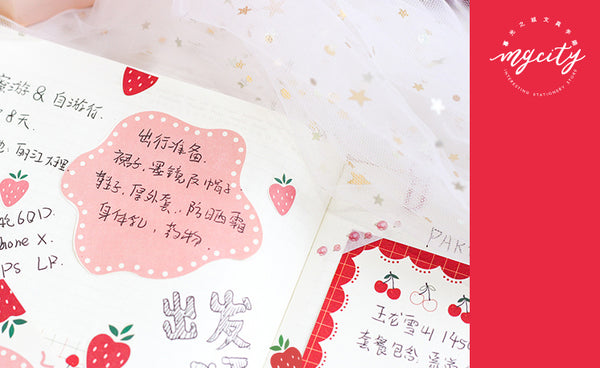 游 & 自游行.
8天.
丽江大理
6QD.
hone X.
PS LP.
出行准备.
裙子, 墨镜及帽子.
鞋子, 厚外套, 防晒霜
身体乳, 药物.
出发
PAK
玉龙雪山 145
套餐包含,
mycity
INTERESTING STATIONERY STORE